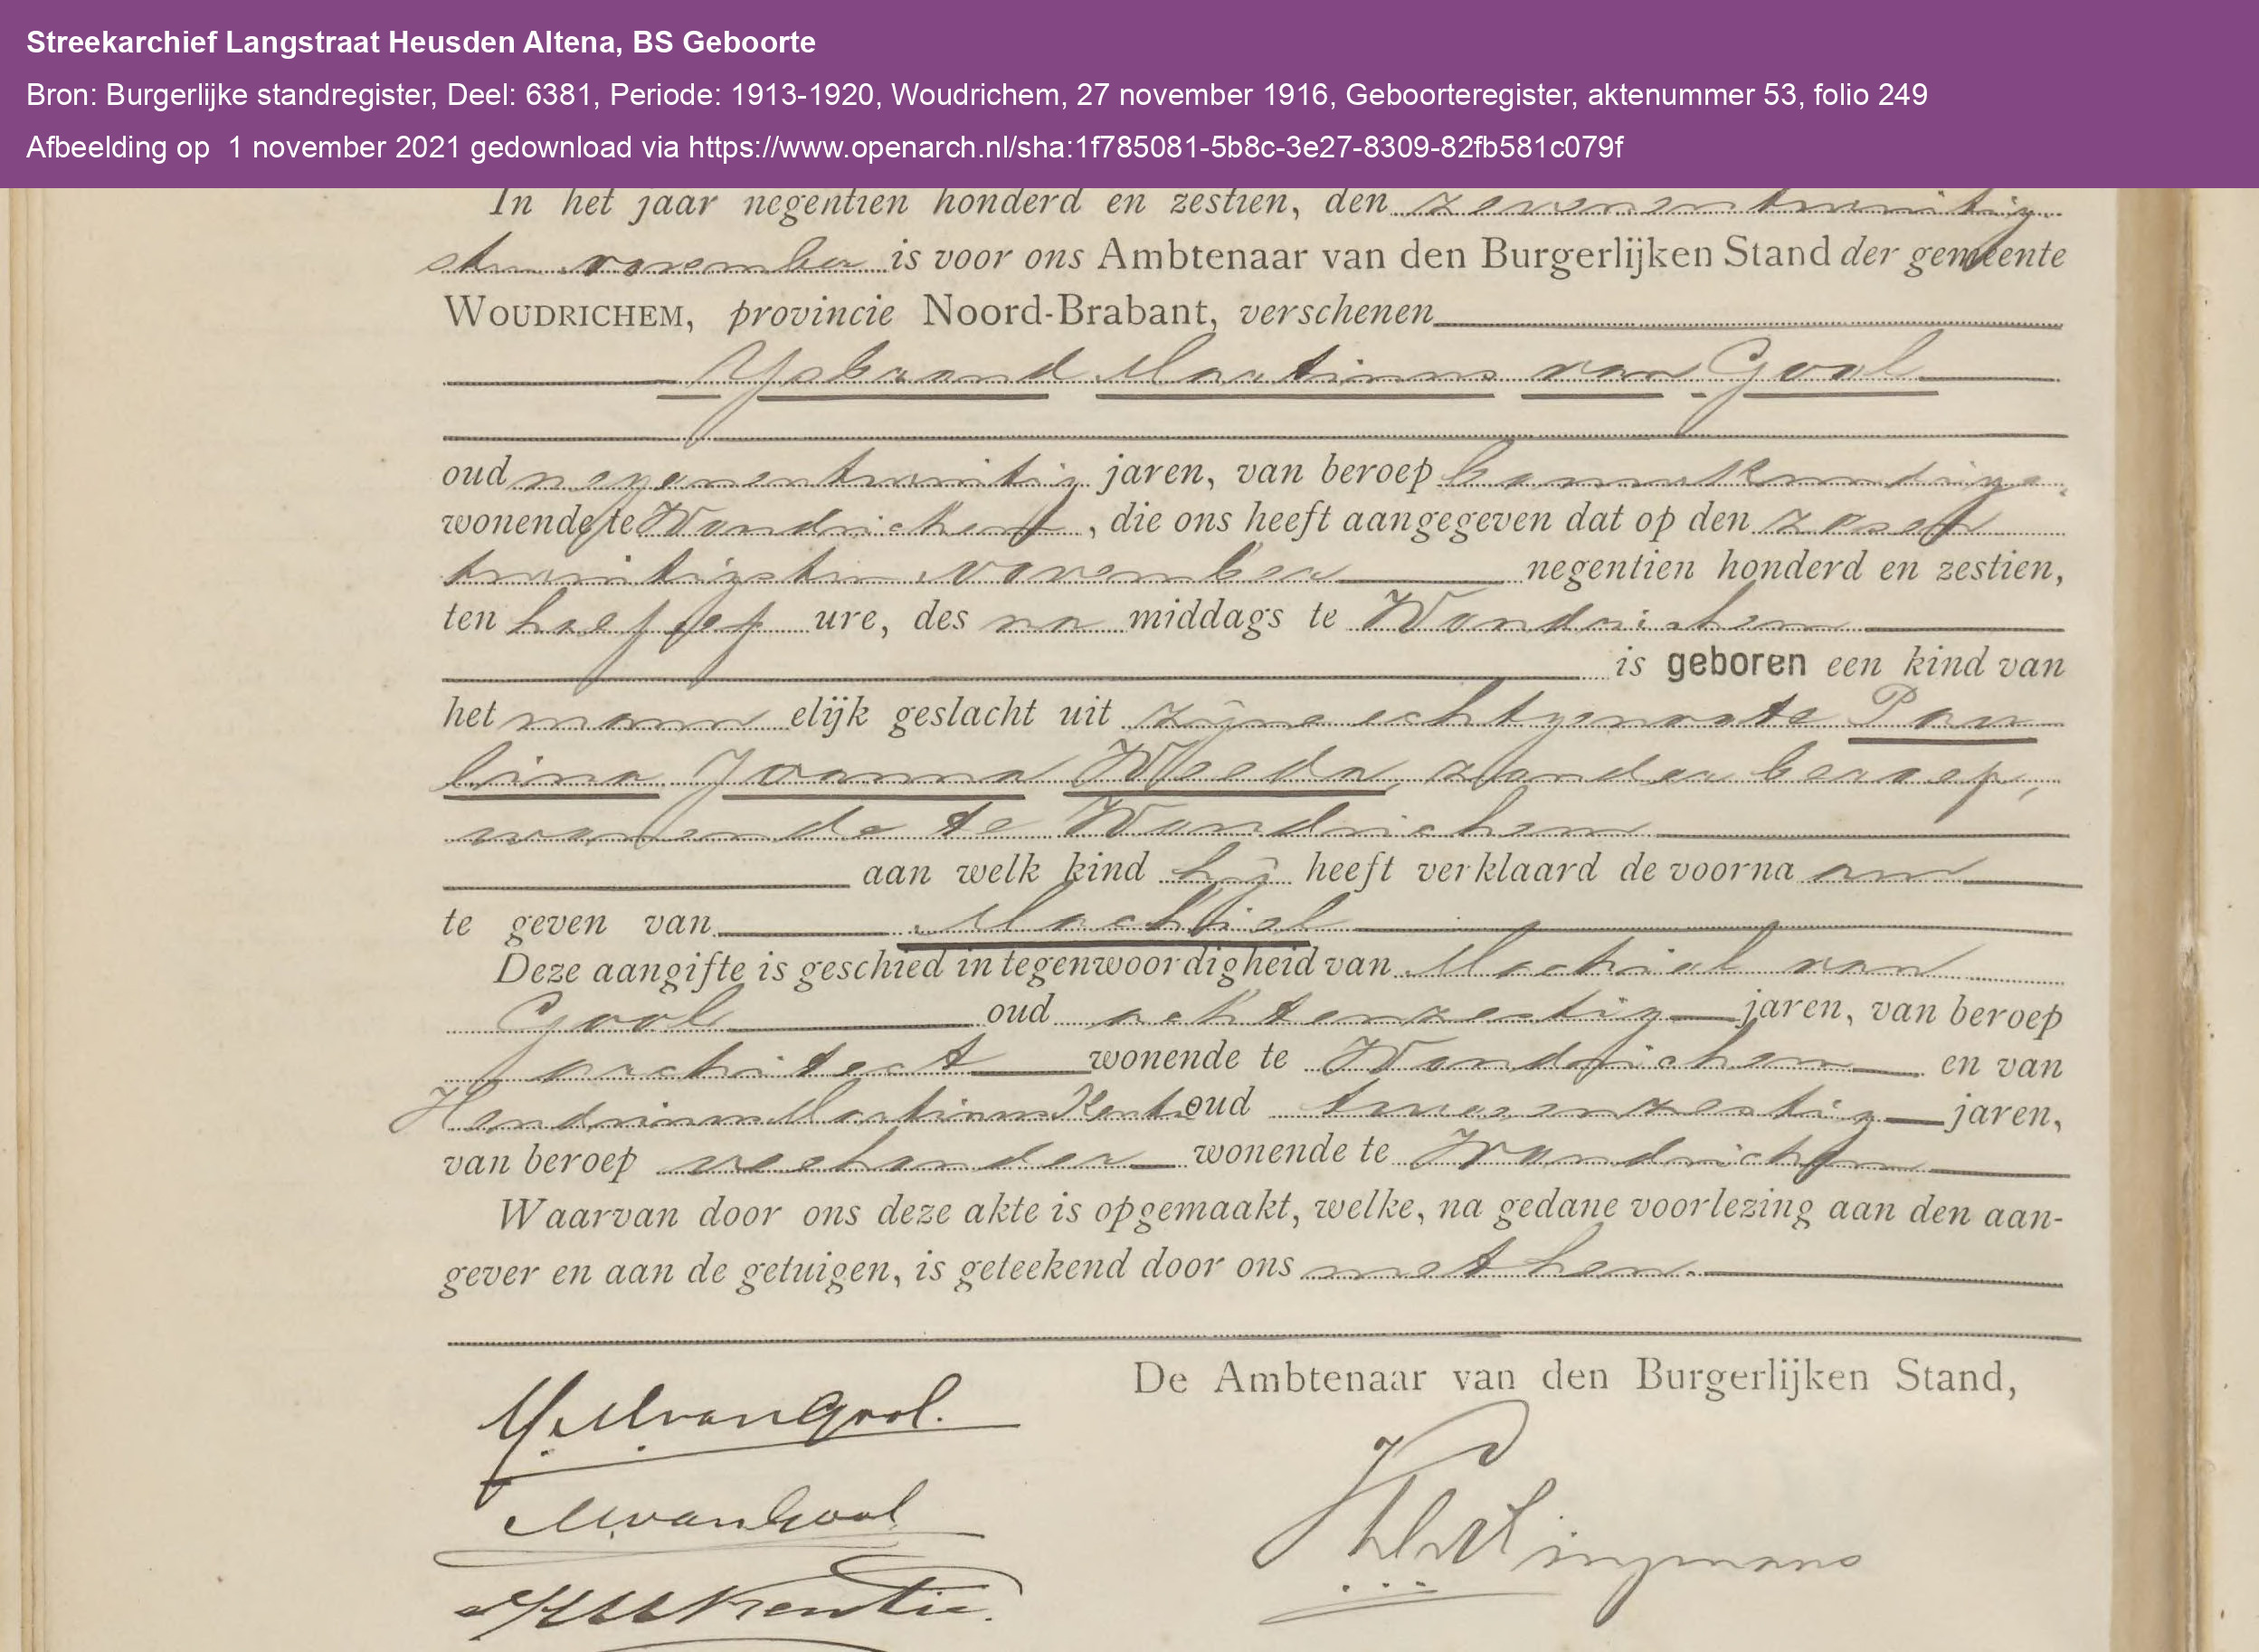 Streekarchief Langstraat Heusden Altena, BS Geboorte
Bron: Burgerlijke standregister, Deel: 6381, Periode: 1913-1920, Woudrichem, 27 november 1916, Geboorteregister, aktenummer 53, folio 249
Afbeelding op 1 november 2021 gedownload via https://www.openarch.nl/sha:1f785081-5b8c-3e27-8309-82fb581c079f
In het jaar negentien honderd en zestien, den zevenentwintig
sten november is voor ons Ambtenaar van den Burgerlijken Stand der gemeente
WOUDRICHEM, provincie Noord-Brabant, verschenen
Ysbrand Martinus van Gool
oud negenentwintig jaren, van beroep bouwkundige,
wonende te Woudrichem, die ons heeft aangegeven dat op den zesen
twintigsten november negentien honderd en zestien,
ten half elf ure, des na middags te Woudrichem
is geboren een kind van
het mann elijk geslacht uit zijne echtgenoote Pau
lina Joanna Weeda, zonder beroep,
wonende te Woudrichem
aan welk kind hij heeft verklaard de voorna am
te geven van Machiel
Deze aangifte is geschied in tegenwoordigheid van Machiel van
Gool oud achtenzestig jaren, van beroep
architect wonende te Woudrichem en van
Hendrinus Martinus Kentie oud tweeenzestig jaren,
van beroep veehouder wonende te Woudrichem
Waarvan door ons deze akte is opgemaakt, welke, na gedane voorlezing aan den aan-
gever en aan de getuigen, is geteekend door ons met hen.
De Ambtenaar van den Burgerlijken Stand,
Y. M. van Gool.
M. van Gool
H M Kentie.